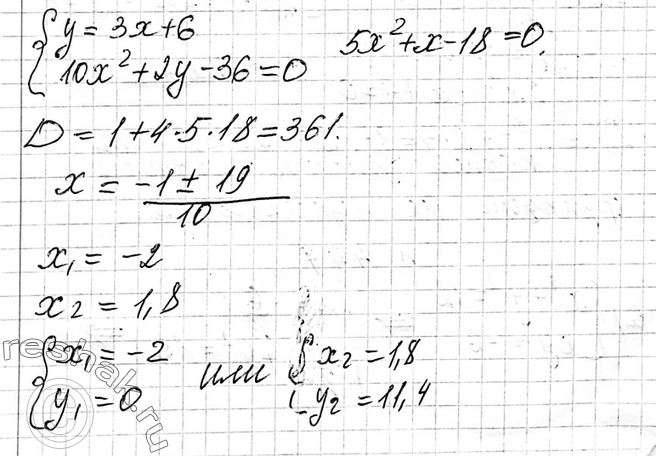 {y = 3x+6
{10x²+2y-36=0
5x²+x-18=0.
D = 1+4·5·18=361.
x = (-1 ± 19)/10
x₁ = -2
x₂ = 1,8
{x₁ = -2
{y₁ = 0
или
{x₂ = 1,8
{y₂ = 11,4
reshak.ru